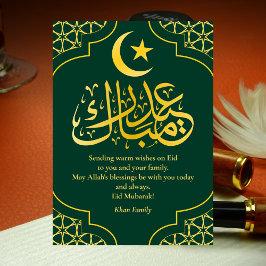 عيد مبارك
Sending warm wishes on Eid
to you and your family.
May Allah's blessings be with you today
and always.
Eid Mubarak!
Khan Family